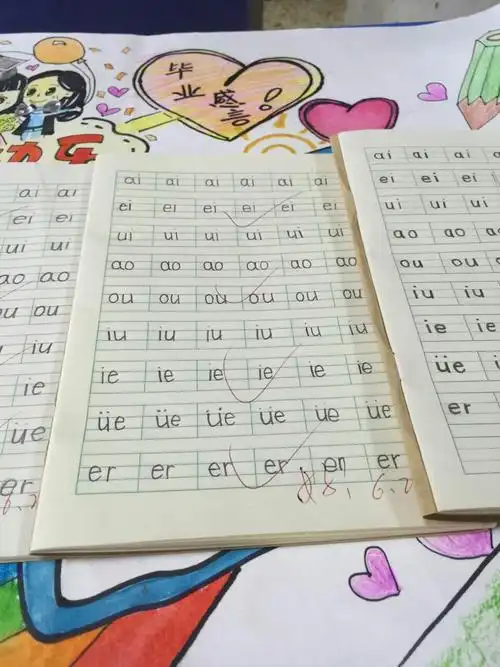 毕
业
感
言!
ai ai
ei ei
ui ui
ao ao
ou ou
iu
ie
üe
er
ai ai ai ai ai ai
ei ei ei ei ei ei
ui ui ui ui ui ui
ao ao ao ao ao ao
ou ou ou ou ou ou
iu iu iu iu iu iu
ie ie ie ie ie ie
üe üe üe üe üe üe
er er er er er er
ai ai ai
ei ei ei
ui ui ui
ao ao ao
ou ou
iu iu
ie ie
üe
er